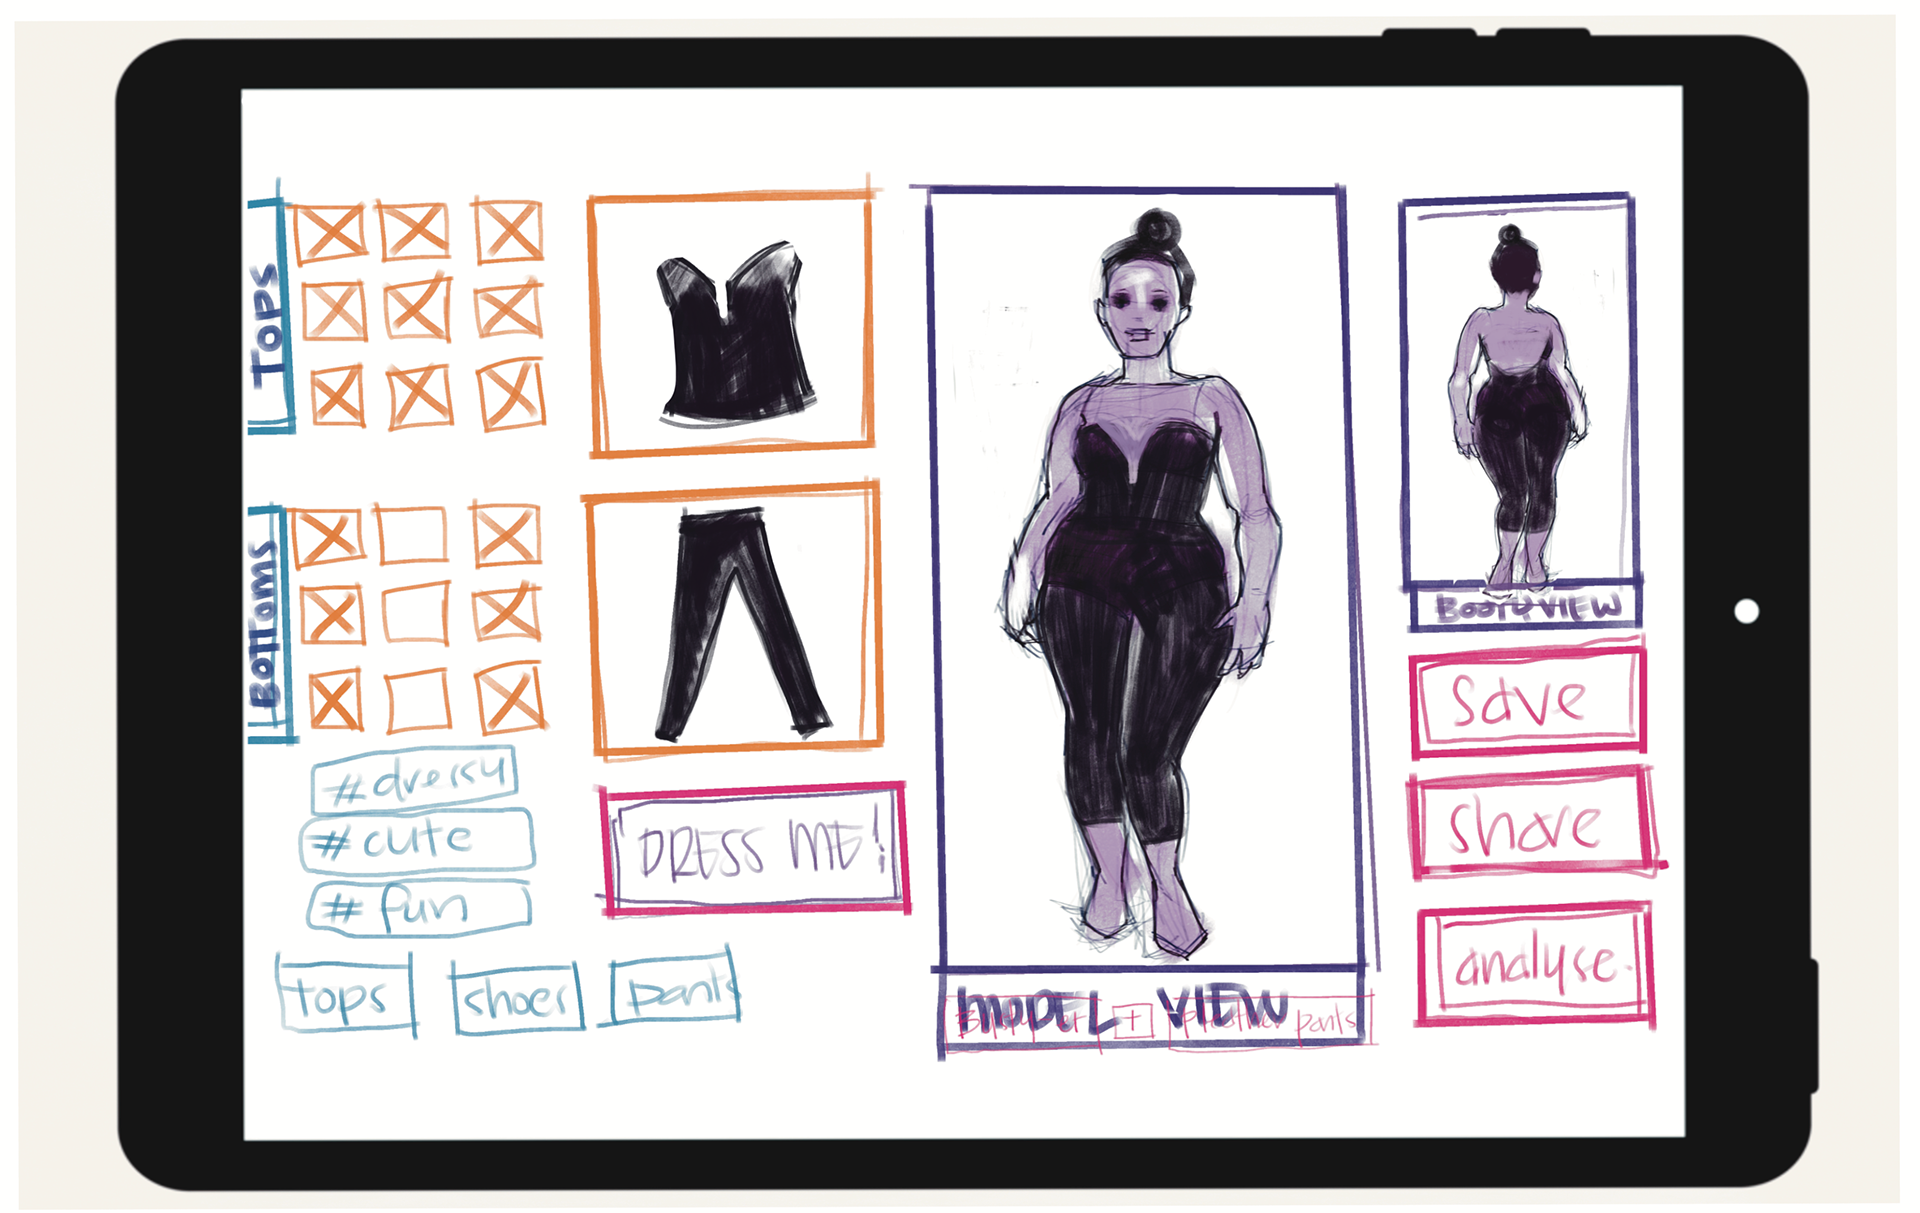 Tops
Bottoms
#dressy
#cute
# fun
tops
shoes
pants
DRESS ME!
MODEL VIEW
+
pants
VIEW
save
share
analyse.